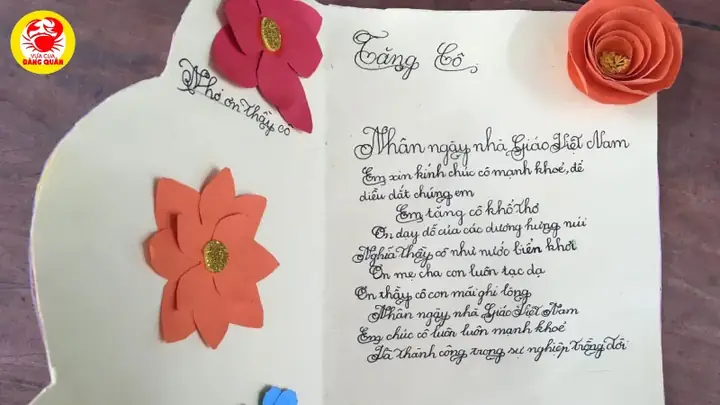 VỰA CUA
ĐĂNG QUÂN
Nhớ ơn thầy cô
Tặng Cô
Nhân ngày nhà Giáo Việt Nam
Em xin kính chúc cô mạnh khoẻ, để
diều dắt chúng em
Em tặng cô khổ thơ
Ơn dạy dỗ của các dương hưng núi
Nghĩa thầy cô như nước biển khơi
Ơn mẹ cha con luôn tạc dạ
Ơn thầy cô con mãi ghi lòng
Nhân ngày nhà Giáo Việt Nam
Em chúc cô luôn luôn mạnh khoẻ
Và thành công trong sự nghiệp trồng đời